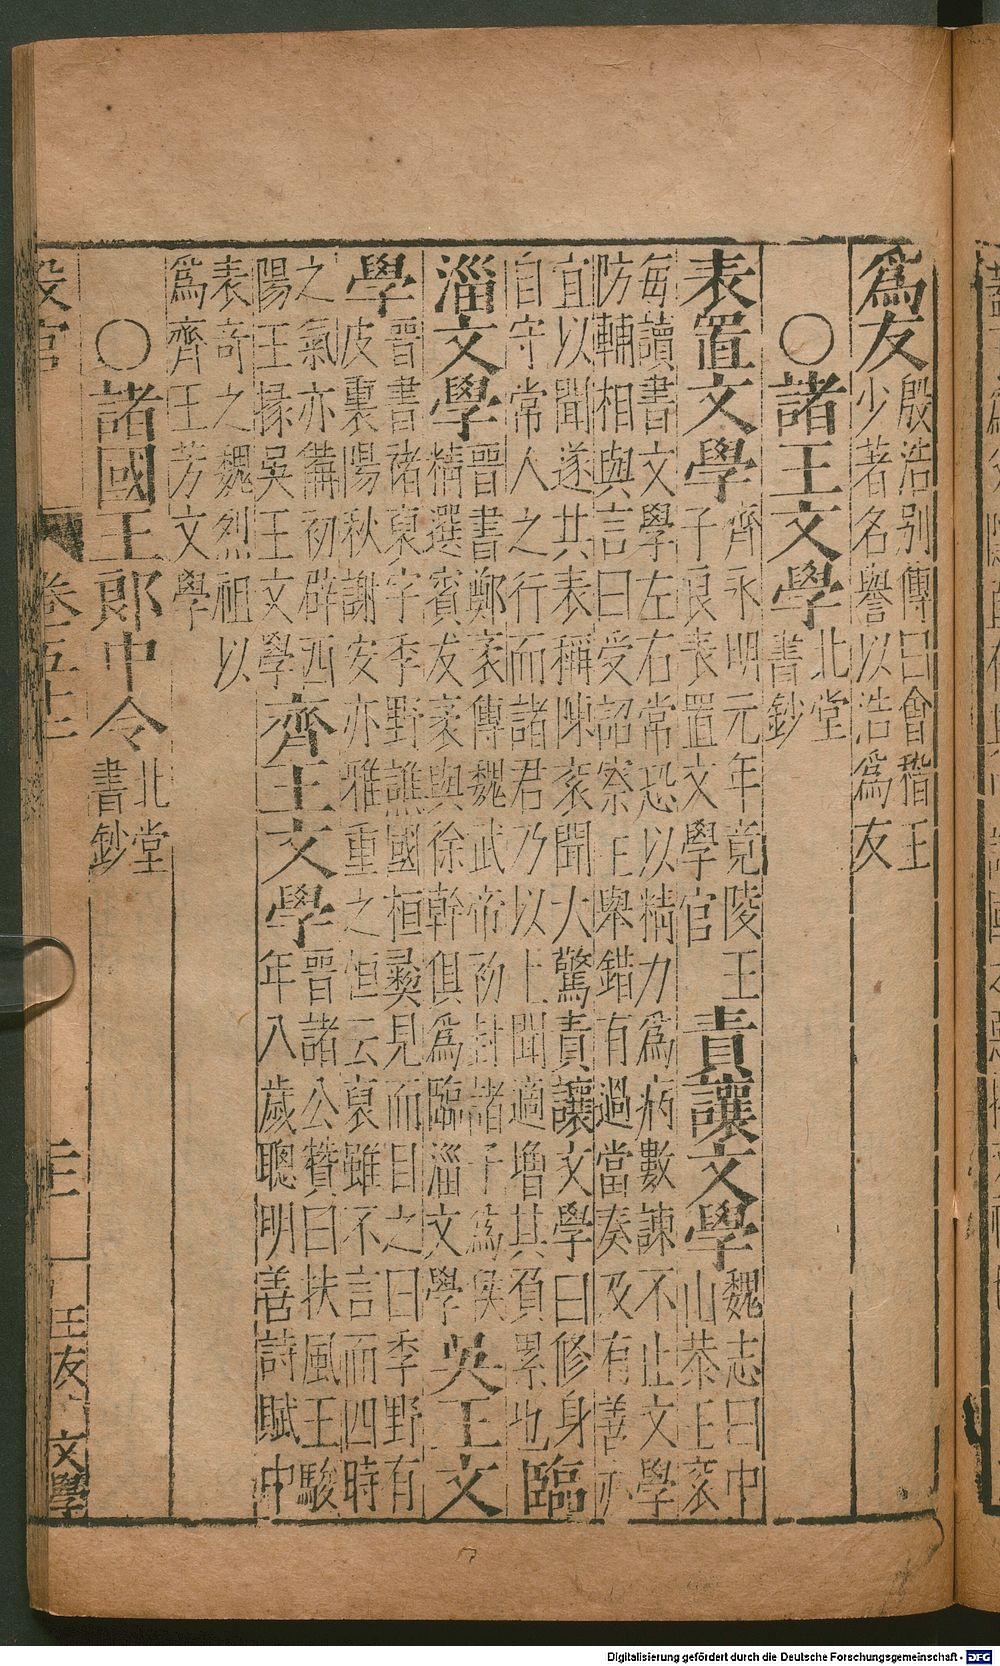 爲友
殷浩别傳曰會稽王
少著名譽以浩爲友
〇諸王文學
北堂
書鈔
表置文學
齊永明元年竟陵王
子良表置文學官
責讓文學
魏志曰中
山恭王衮
每讀書文學左右常恐以精力爲病數諫不止文學
防輔相與言曰受詔察王舉錯有過當奏及有善亦
宜以聞遂共表稱陳衮聞大驚責讓文學曰修身
自守常人之行而諸君乃以上聞適增其負累也
臨
淄文學
晉書鄭袤傳魏武帝初封諸子爲侯
精選賓友袤與徐幹俱爲臨淄文學
吳王文
學
晉書禇裒字季野譙國桓彝見而目之曰季野有
皮裏陽秋謝安亦雅重之恒云裒雖不言而四時
之氣亦備初辟西
陽王掾吳王文學
齊王文學
晉諸公贊曰扶風王駿
年八歲聰明善詩賦中
表奇之魏烈祖以
爲齊王芳文學
〇諸國王郎中令
北堂
書鈔
設官
王友
文學
Digitalisierung gefördert durch die Deutsche Forschungsgemeinschaft - DFG